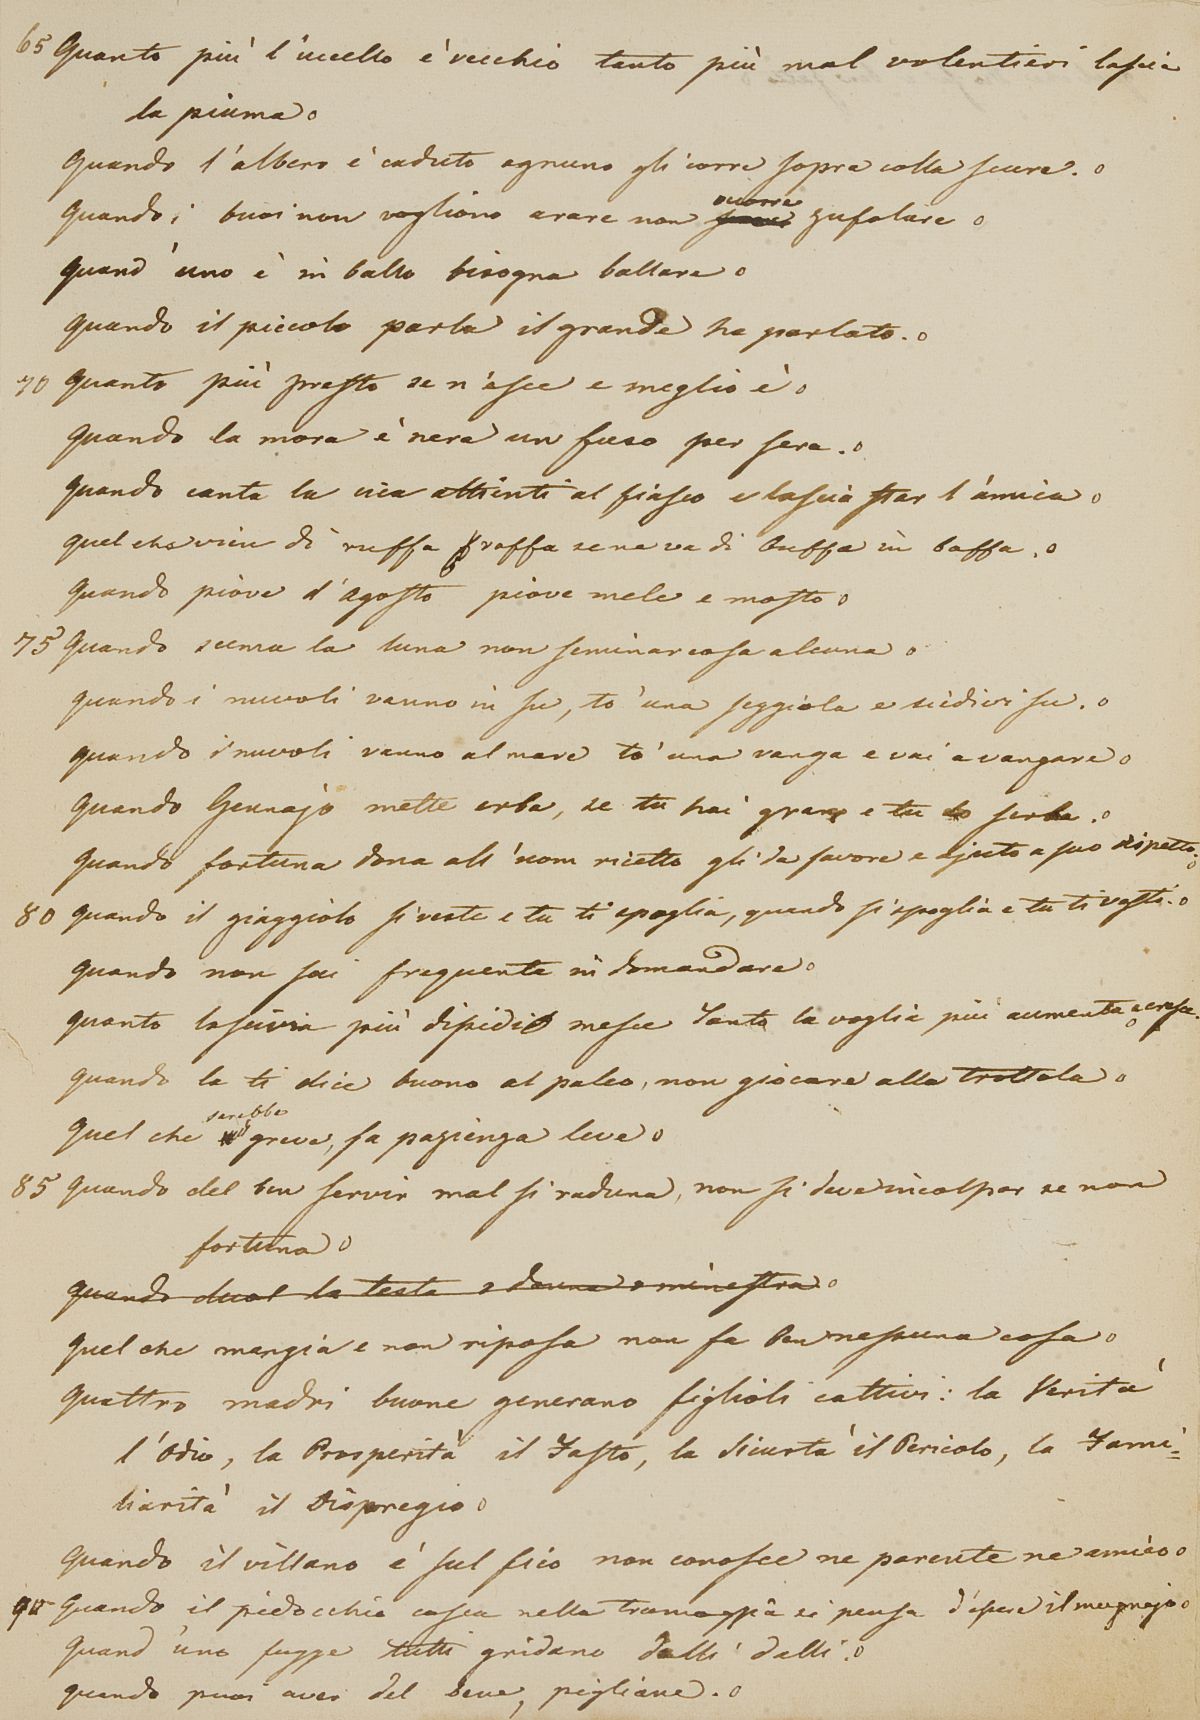 65 Quanto più l'uccello è vecchio tanto più mal volentieri lascia
la piuma
Quando l'albero è caduto ognuno gli corre sopra colla scure.
Quando i buoi non vogliono arare non occorre zufolare
Quand'uno è in ballo bisogna ballare
Quando il piccolo parla il grande ha parlato.
70 Quanto più presto se n'esce e meglio è
Quando la mora è nera un fuso per sera.
Quando canta la cica attienti al fiasco e lascia star l'amica
Quel che vien di ruffa raffa se ne va di buffa in baffa.
Quando piove d'Agosto piove mele e mosto
75 Quando scema la luna non seminar cosa alcuna
Quando i nuvoli vanno in su, to' una seggiola e siedivi su.
Quando i nuvoli vanno al mare to' una vanga e vai a vangare
Quando Gennajo mette erba, se tu hai grano e tu lo serba.
Quando fortuna dona all'uom ricetto gli da favore e ajuto a suo dispetto.
80 Quando il giaggiolo si veste e tu ti spoglia, quando si spoglia e tu ti vesti.
Quando non sai frequenta in domandare
Quanto lascivia più disidio mesce Tanto la voglia più aumenta e cresce.
Quando la ti dice buono al paleo, non giocare alla trottola
Quel che sarebbe greve, fa pazienza leve
85 Quando del ben servir mal si raduna, non si deve incolpar se non
fortuna
Quando duol la testa o donna o minestra
Quel che mangia e non riposa non fa ben nessuna cosa
Quattro madri buone generano figlioli cattivi: la Verità
l'Odio, la Prosperità il Fasto, la Sicurtà il Pericolo, la Fami=
liarità il Dispregio
Quando il villano è sul fico non conosce ne parente ne amico
90 Quando il pidocchio casca nella tramoggia si pensa d'essere il mugnajo
Quand'uno fugge tutti gridano dalli dalli.
Quando puoi aver del bene, pigliane.